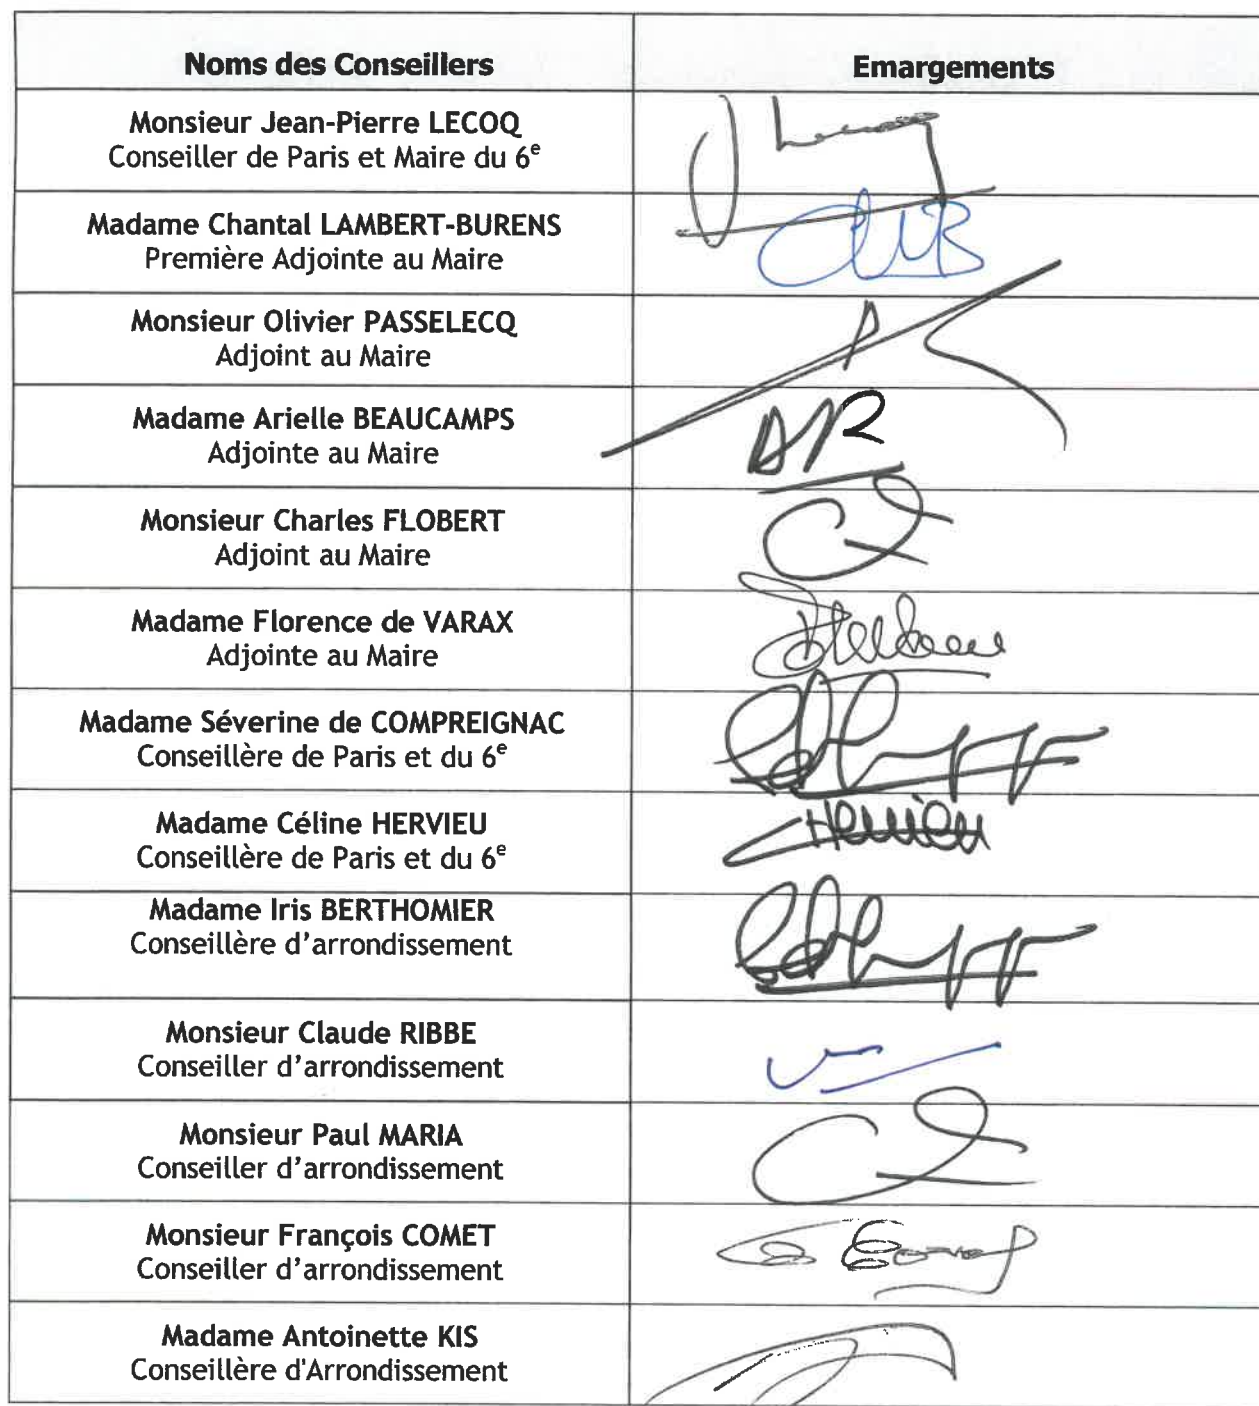 Noms des Conseillers
Emargements
Monsieur Jean-Pierre LECOQ
Conseiller de Paris et Maire du 6e
Madame Chantal LAMBERT-BURENS
Première Adjointe au Maire
Monsieur Olivier PASSELECQ
Adjoint au Maire
Madame Arielle BEAUCAMPS
Adjointe au Maire
Monsieur Charles FLOBERT
Adjoint au Maire
Madame Florence de VARAX
Adjointe au Maire
Madame Séverine de COMPREIGNAC
Conseillère de Paris et du 6e
Madame Céline HERVIEU
Conseillère de Paris et du 6e
Madame Iris BERTHOMIER
Conseillère d’arrondissement
Monsieur Claude RIBBE
Conseiller d’arrondissement
Monsieur Paul MARIA
Conseiller d’arrondissement
Monsieur François COMET
Conseiller d’arrondissement
Madame Antoinette KIS
Conseillère d'Arrondissement